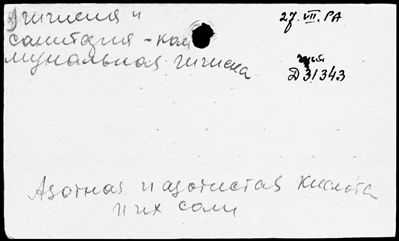 гигиена и
санитария - ком
мунальная гигиена
27. VII. РА
Д31343
Азотная и азотистая кислота
и их соли